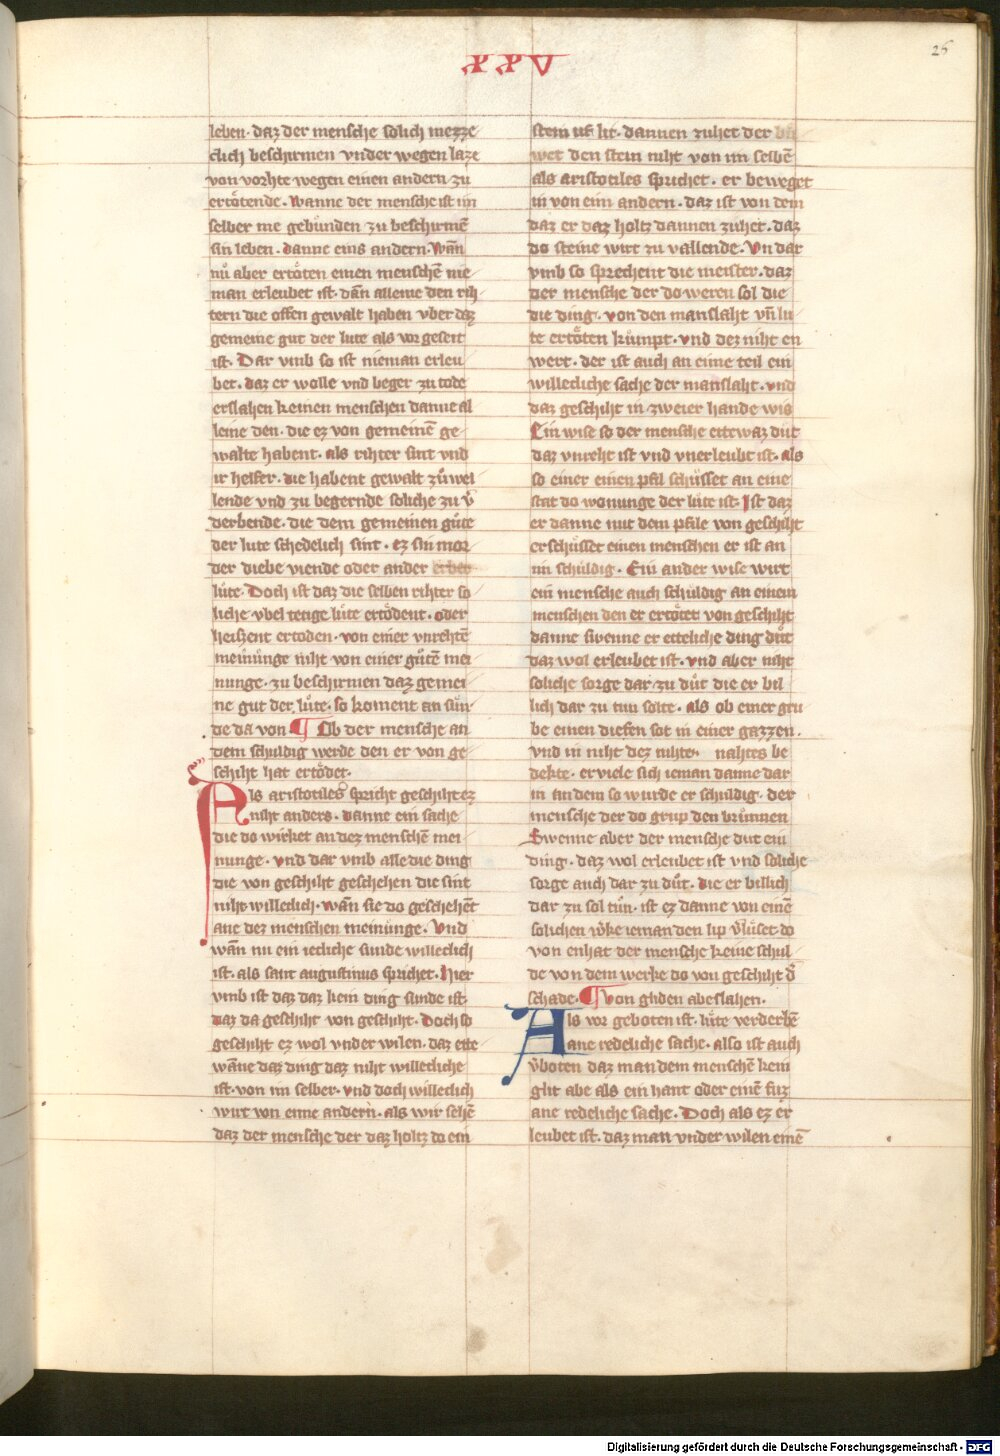 XXV
25
leben · daz der mensche solich mezze/
clich beschirmen vnder wegen laze
von vorhte wegen einen andern zu
ertötende · Wanne der mensche ist im
selber me gebunden zu beschirmē
sin leben · danne eins andern · Wañ
nů aber ertöten einen menschē nie/
man erleubet ist · dañ alleine den rih
tern die offen gewalt haben vber daz
gemeine gut der lute als vor geseit
ist · Dar vmb so ist nieman erleu/
bet · daz er wolle vnd beger zu tode
erslahen keinen menschen danne al
leine den · die ez von gemeinē ge/
walte habent · als rihter sint vnd
ir helfer · die habent gewalt zů wel/
lende vnd zu begernde soliche zu v̄/
derbende · die dem gemeinen gůte
der lute schedelich sint · ez sin mor/
der diebe viende oder ander erber
lůte · Doch ist daz die selben rihter so/
liche vbel tetige lůte ertödent · oder
heizzent ertoden · von einer vnrehtē
meinůnge niht von einer gůtē mei/
nunge · zu beschirmen daz gemei/
ne gut der lůte · so koment an sůn/
de da von ¶ Ob der mensche an
dem schuldig werde den er von ge/
schiht hat ertödet ·
Als aristotiles spricht geschiht ez
niht anders · danne ein sache
die do wirket an dez menschē mei/
nunge · vnd dar vmb alle die ding
die von geschiht geschehen die sint
niht willeclich · wañ sie do geschehēt
ane dez menschen meinůnge · Vnd
wañ nu ein iecliche sunde willeclich
ist · als sant augustinus sprichet · Hier
vmb ist daz daz kein ding sunde ist
daz da geschiht von geschiht · Doch so
geschiht ez wol vnder wilen · daz ette
wāne daz ding daz niht willecliche
ist · von im selber · vnd doch willeclich
wirt von eime andern · als wir sehē
daz der mensche der daz holtz do ein
stein uf lit · dannen zuhet der
wet den stein niht von im selbē
als aristotiles sprichet · er beweget
in von eim andern · daz ist von dem
daz er daz holtz dannen zůhet · daz
do steine wirt zu vallende · Vn dar
vmb so sprechent die meister · daz
der mensche der do weren sol die
die ding · von den manslaht vñ lu/
te ertöten kůmpt · vnd dez niht en
wert · der ist auch an eime teil ein
willecliche sache der manslaht · vnd
daz geschiht in zweier hande wis
Ein wise so der mensche ettewaz důt
daz vnreht ist vnd vnerleubt ist · als
so einer einen pfil schůsset an eine
stat do wonunge der lůte ist · Ist daz
er danne mit dem pfile von geschiht
erschůsset einen menschen er ist an
im schuldig · Ein ander wise wirt
ein mensche auch schuldig an einem
menschen den er ertötet von geschiht
danne swenne er etteliche ding důt
daz wol erleubet ist · vnd aber niht
soliche sorge dar zu důt die er bil/
lich dar zu tun solte · als ob einer gru
be einen diefen sot in einer gazzen ·
vnd in niht dez nihtes · nahtes be
dekte · er viele sich ieman danne dar
in an dem so wurde er schuldig · der
mensche der do grup den brůnnen
Swenne aber der mensche dut ein
ding · daz wol erleubet ist vnd soliche
sorge auch dar zu důt · die er billich
dar zu sol tůn · ist ez danne von einē
solichen w̄ke ieman den lip v̄lůset do
von enhat der mensche keine schul/
de von dem werke do von geschiht d̄
schade · ¶ Von gliden abeslahen ·
Als vor geboten ist · lůte verderbē
ane redeliche sache · also ist auch
v̄boten daz man dem menschē kein
glit abe als ein hant oder einē fuz
ane redeliche sache · Doch als ez er
leubet ist · daz man vnder wilen einē
Digitalisierung gefördert durch die Deutsche Forschungsgemeinschaft - DFG